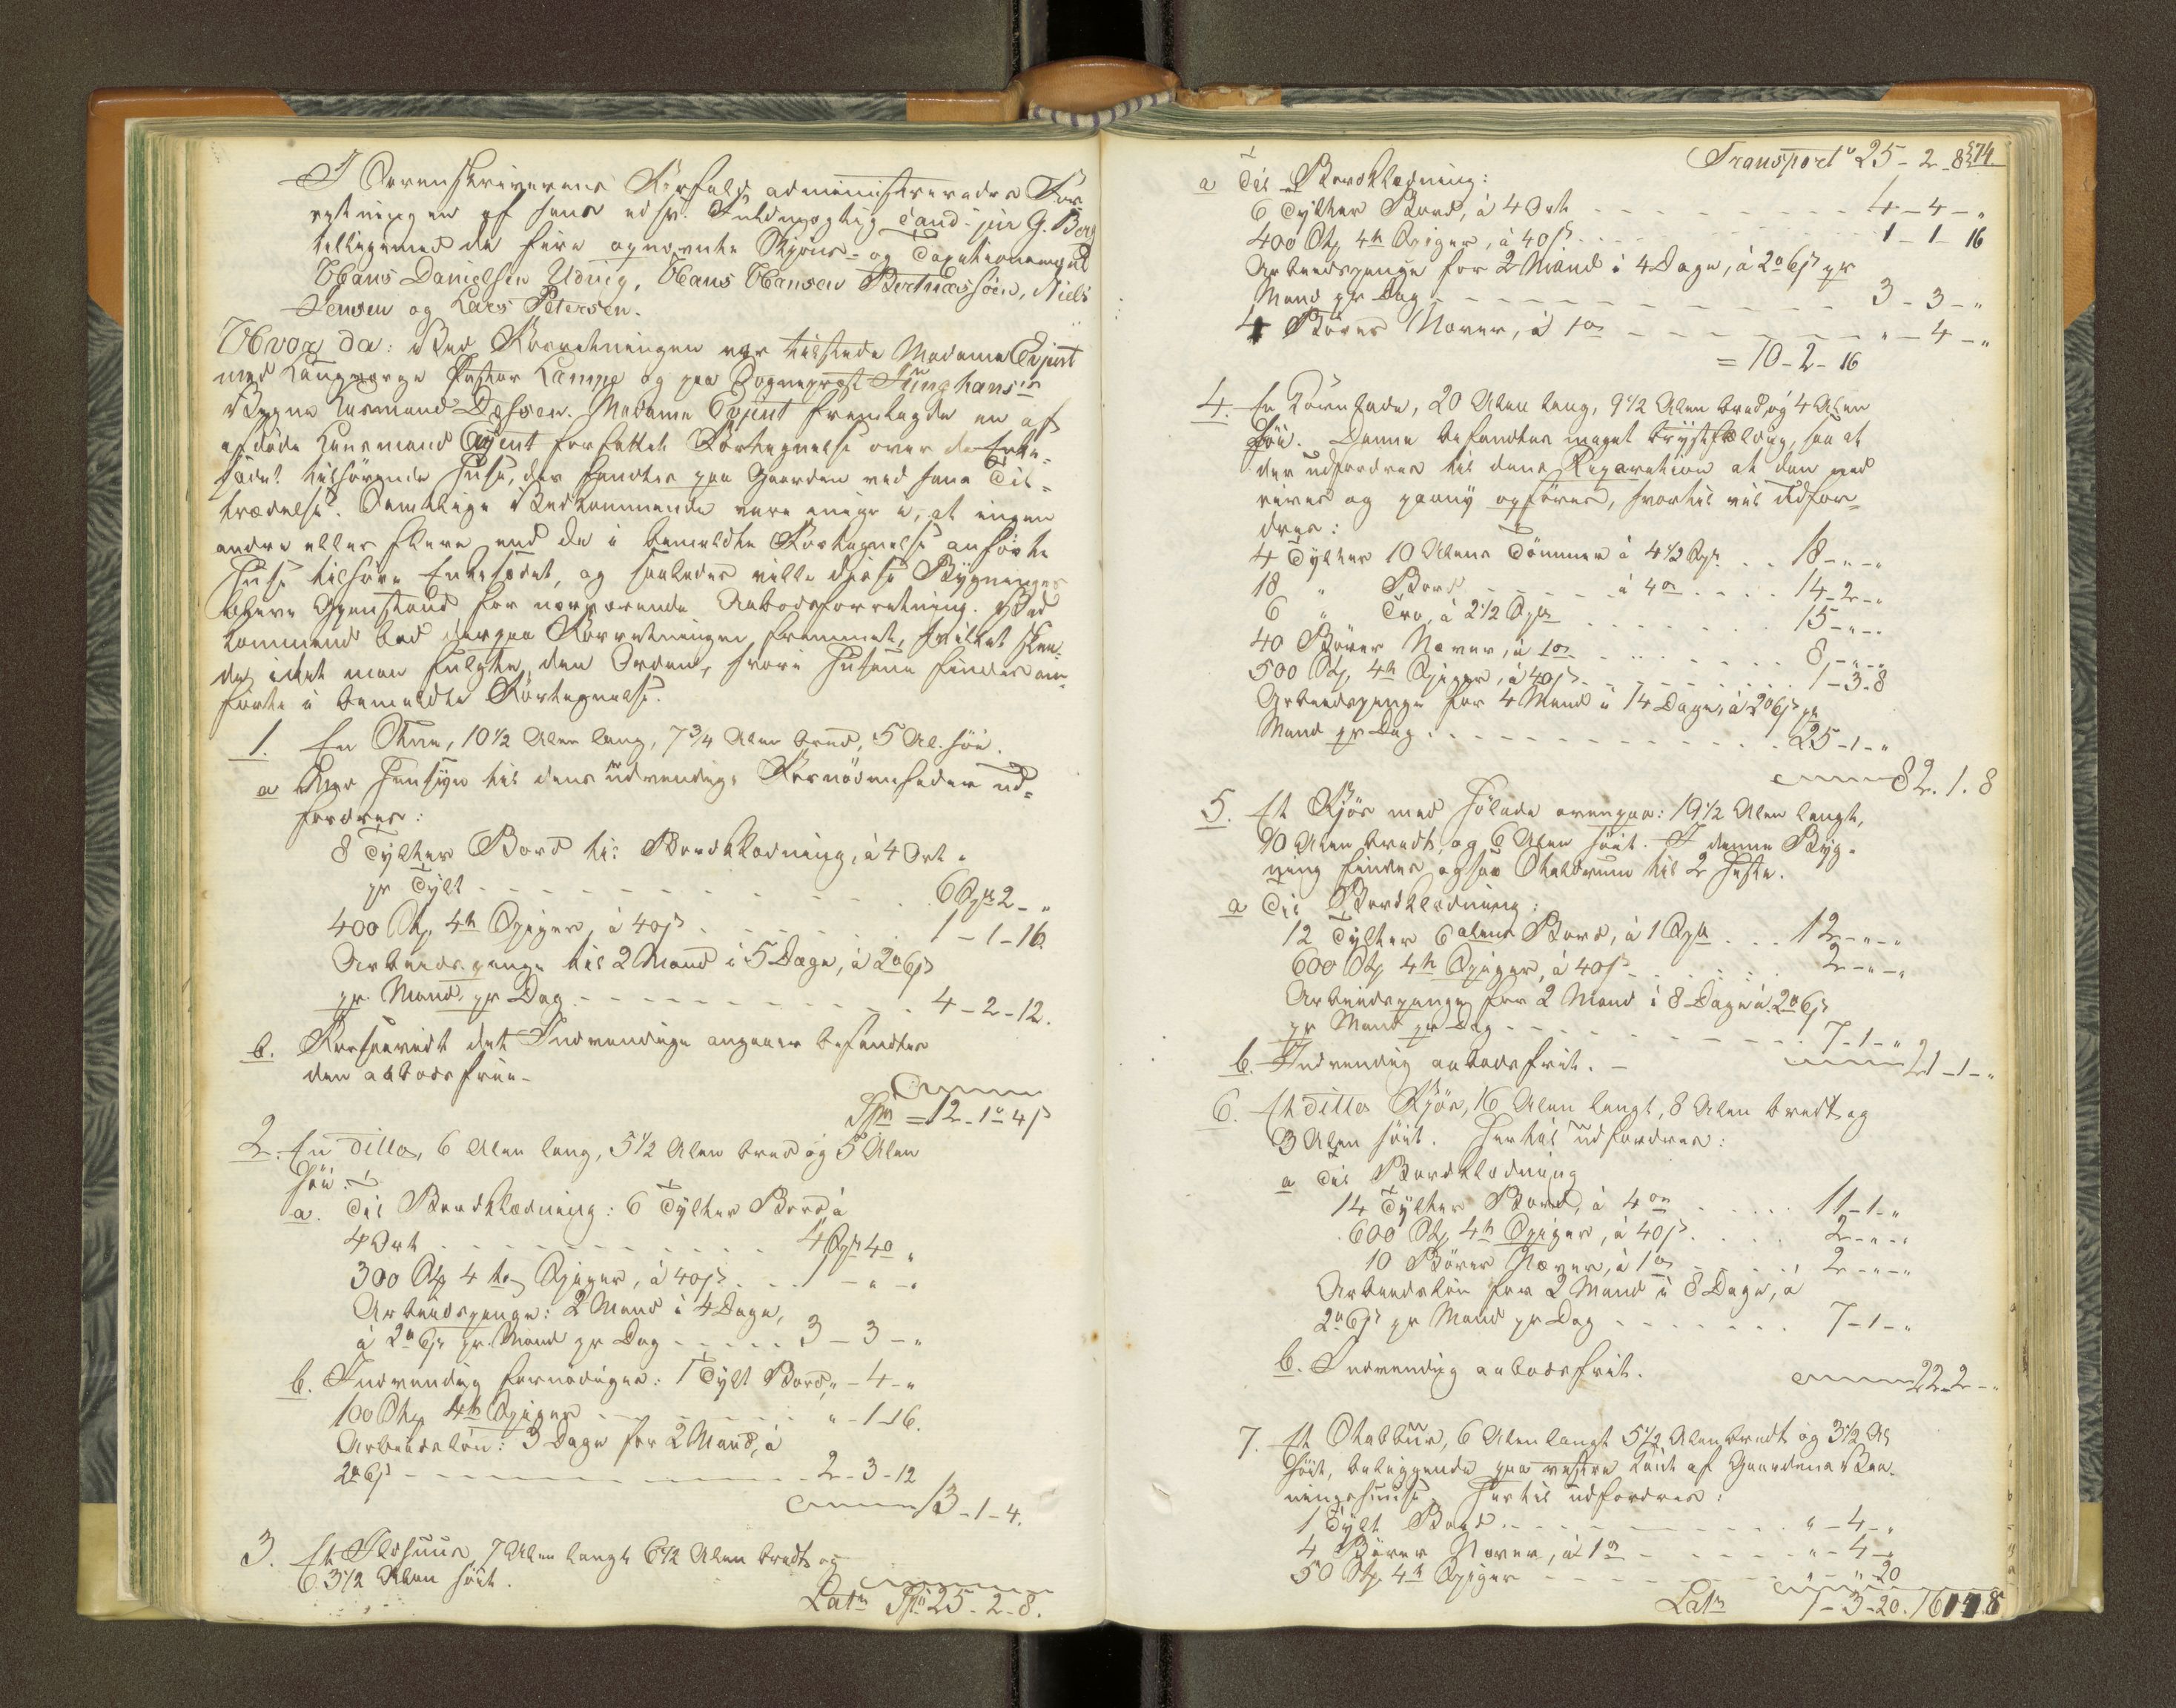 I Sorenskriverens Forfald administreredes For
retningen af hans edsv. Fuldmægtig Cand. jur G. Berg
tilligemed de fire opnævnte Skjøns- og Taxationsmænd
Hans Danielsen Udvig, Hans Hansen Bertnæssøen, Niels
Jensen og Lars Petersen.
Hvor da: Ved Forretningen var tilstede Madame Evjent
med Laugværge Pastor Lampe og paa Sogneprest Junghans's
Vegne Lensmand Dahsen. Madame Evjent fremlagde en af
afdøde Lensmand Evjent forfattet Fortegnelse over de Enke-
sædet tilhørende Huse, der fandtes paa Gaarden ved hans Til-
trædelse. Samtlige Vedkommende vare enige i, at ingen
andre eller flere end de i bemeldte Fortegnelse anførte
Huse tilhøre Enkesædet, og saaledes ville disse Bygninger
blive Gjenstand for nærværende Aabodsforretning. Ved
kommende bad derpaa Forretningen fremmet, hvilket skee-
de, idet man fulgte den Orden, hvori Husene findes an-
førte i bemeldte Fortegnelse.
1. En Stue, 10 1/2 Alen lang, 7 3/4 Alen bred, 5 Al. høi.
a Med Hensyn til dens udvendige Fornødenheder ud-
fordres:
8 Tylter Bord til Bordklædning, à 4 Ort
pr Tylt 6 Spd 2 - "
400 Stk 4t Spiger, à 40 s 1 - 1 - 16.
Arbeidspenge til 2 Mand i 5 Dage, à 2 o 6 s
pr. Mand pr Dag 4 - 2 - 12.
b. Forsaavidt det Indvendige angaaer befandtes
den aabodsfrie.
Spd = 12 - 1 o 4 s
2. En ditto, 6 Alen lang, 5 1/2 Alen bred og 5 Alen
høi.
a. Til Bordklædning: 6 Tylter Bord à
4 Ort 4 Spd 4 o "
300 Stk 4 t Spiger, à 40 s 1 - " - "
Arbeidspenge: 2 Mand i 4 Dage,
à 2 o 6 s pr. Mand pr Dag 3 - 3 - "
b. Indvendig fornødiges: 1 Tylt Bord, " - 4 - "
100 Stk 4t Spiger " - 1 - 16.
Arbeidsløn: 3 Dage for 2 Mand, à
2 o 6 s 2 - 3 - 12
13 - 1 - 4.
3. Et Ildhuus, 7 Alen langt 6 1/2 Alen bredt og
3 1/2 Alen høit.
Lats Spd 25 - 2 - 8.
Transport 25 - 2 - 8 574
a Til Bordklædning:
6 Tylter Bord, à 4 Ort 4 - 4 - "
400 Stk 4t Spiger, à 40 s 1 - 1 - 16
Arbeidspenge for 2 Mand i 4 Dage, à 2 o 6 s pr
Mand pr Dag 3 - 3 - "
4 Bører Næver, à 1 o " - 4 - "
= 10 - 2 - 16
4. En Kornlade, 20 Alen lang, 9 1/2 Alen bred, og 4 Alen
høi. Denne befandtes meget brøstfældig, saa at
der udfordres til dens Reparation at den ned
rives og paany opføres, hvortil vil udfor-
dres:
4 Tylter 10 Alens Tømmer à 4 1/2 Spd 18 - " - "
18 " Bord à 4 o 14 - 2 - "
6 " Tro, à 2 1/2 Spd 15 - " - "
40 Bører Næver, à 1 o 8 - " - "
500 Stk 4t Spiger, à 40 s 1 - 3 - 8
Arbeidspenge for 4 Mand i 14 Dage, à 2 o 6 s pr
Mand pr Dag 25 - 1 - "
82. 1. 8
5. Et Fjøs med Høelade ovenpaa: 19 1/2 Alen langt,
10 Alen bredt, og 6 Alen høit. I denne Byg-
ning findes ogsaa Staldrum til 2 Heste.
a Til Bordklædning:
12 Tylter 6 alens Bord, à 1 Spd 12 - " - "
600 Stk 4t Spiger, à 40 s 2 - " - "
Arbeidspenge for 2 Mand i 8 Dage à 2 o 6 s
pr Mand pr Dag 7 - 1 - "
b. Indvendig aabodsfrit. 21 - 1 - "
6. Et ditto Fjøs, 16 Alen langt, 8 Alen bredt og
3 Alen høit. Hertil udfordres:
a Til Bordklædning
14 Tylter Bord, à 4 o 11 - 1 - "
600 Stk 4t Spiger, à 40 s 2 - " - "
10 Bører Næver, à 1 o 2 - " - "
Arbeidsløn for 2 Mand i 8 Dage, à
2 o 6 s pr Mand pr Dag 7 - 1 - "
b. Indvendig aabodsfrit. 22 - 2 - "
7. Et Stabbur, 6 Alen langt 5 1/2 Alen bredt og 3 1/2 Al
høit, beliggende paa vestre Kant af Gaardens Vaa-
ningshuse. Hertil udfordres:
1 Tylt Bord " - 4 - "
4 Bører Næver, à 1 o " - 4 - "
50 Stk 4t Spiger " - " 20
Lats 1 - 3 - 20. 161 - 4 - 8